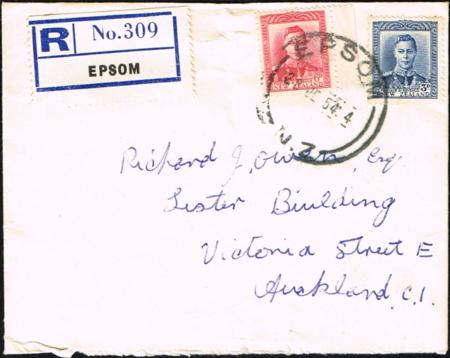 R No.309
EPSOM
NEW ZEALAND
NEW ZEALAND 3d
EPSOM
54 4
N.Z.
Richard J. Owens, Esq.
Lister Biulding
Victoria Street E
Auckland, C.1.